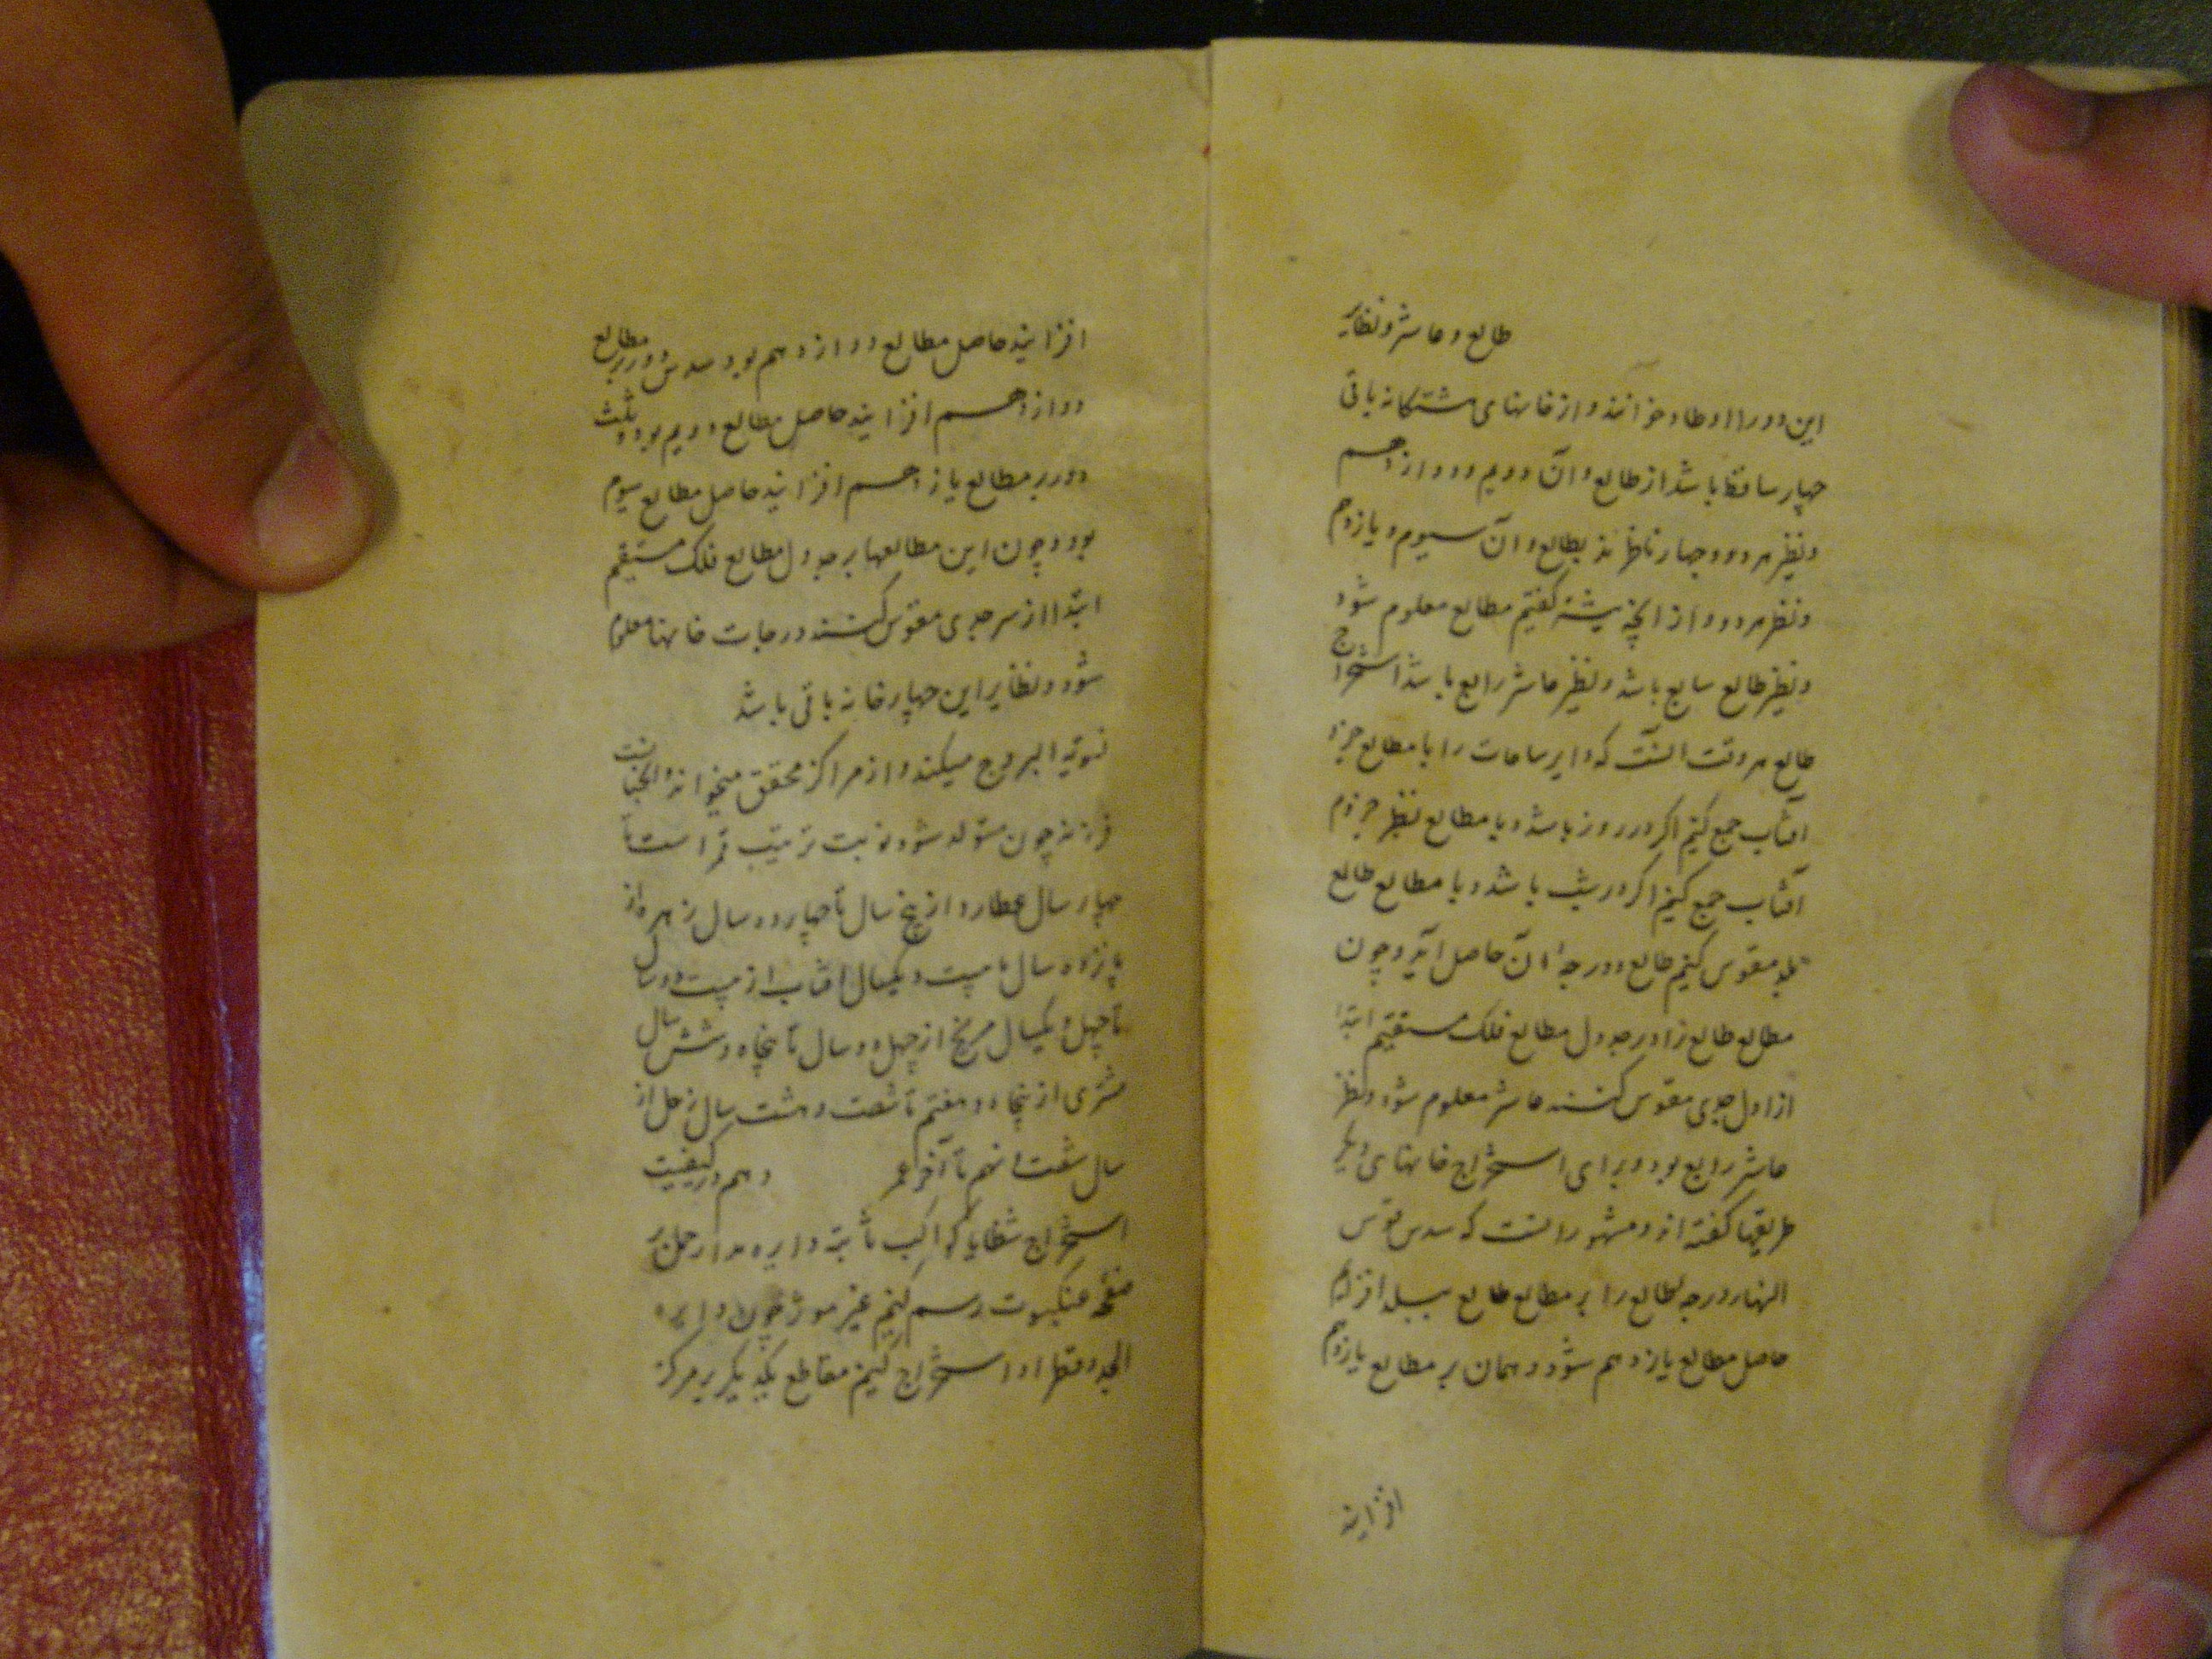 طالع و عاشر و نظایر
این دو را اوتاد خوانند و از خانهای هشتگانه باقی
چهار ساقط باشد از طالع و آن دویم و دوازدهم
و نظیر هر دو و چهار ناظرند بطالع و آن سیوم و یازدهم
و نظیر هر دو و از آنچه پیشتر گفتیم مطالع معلوم شود
و نظیر طالع سابع باشد و نظیر عاشر رابع باشد استخراج
طالع هر وقت آنست که دایر ساعات را با مطالع جزو
آفتاب جمع کنیم اگر در روز باشد و با مطالع نظیر جزوم
آفتاب جمع کنیم اگر در شب باشد و با مطالع طالع
بلد مقوس کنیم طالع و درجه آن حاصل آید و چون
مطالع طالع را در جدول مطالع فلک مستقیم ابتدا
از اول جدی مقوس کنند عاشر معلوم شود و نظیر
عاشر رابع بود و برای استخراج خانهای دیگر
طریقها گفته اند و مشهور آنست که سدس قوس
النهار درجه طالع را بر مطالع طالع ببلد افزایند
حاصل مطالع یازدهم شود و همان بر مطالع یازدهم
افزایند
افزایند حاصل مطالع دوازدهم بود سدس دور بر مطالع
دوازدهم افزایند حاصل مطالع دویم بود و ثلث
دور بر مطالع یازدهم افزایند حاصل مطالع سیوم
بود و چون این مطالعها بر جدول مطالع فلک مستقیم
ابتدا از سر جدی مقوس کنند درجات خانها معلوم
شود و نظایر این چهار خانه باقی باشد
تسویة البروج میکنند و از مراکز محقق میخوانند
فرزند چون متولد شود نوبت تربیت قمر است تا
چهار سال عطارد از پنج سال تا چهارده سال زهره از
پانزده سال تا بیست و یکسال آفتاب از بیست و دو سال
تا چهل و یکسال مریخ از چهل و دو سال تا پنجاه و شش سال
مشتری از پنجاه و هفتم تا شصت و هشت سال زحل از
سال شصت و نهم تا آخر عمر و هم در کیفیت
استخراج شظایا کواکب ثابته دایره مدار حمل بر
صفحه عنکبوت رسم کنیم غیر موثر چون دایره
الجدو قطر او استخراج کنیم مقاطع یکدیگر بر مرکز